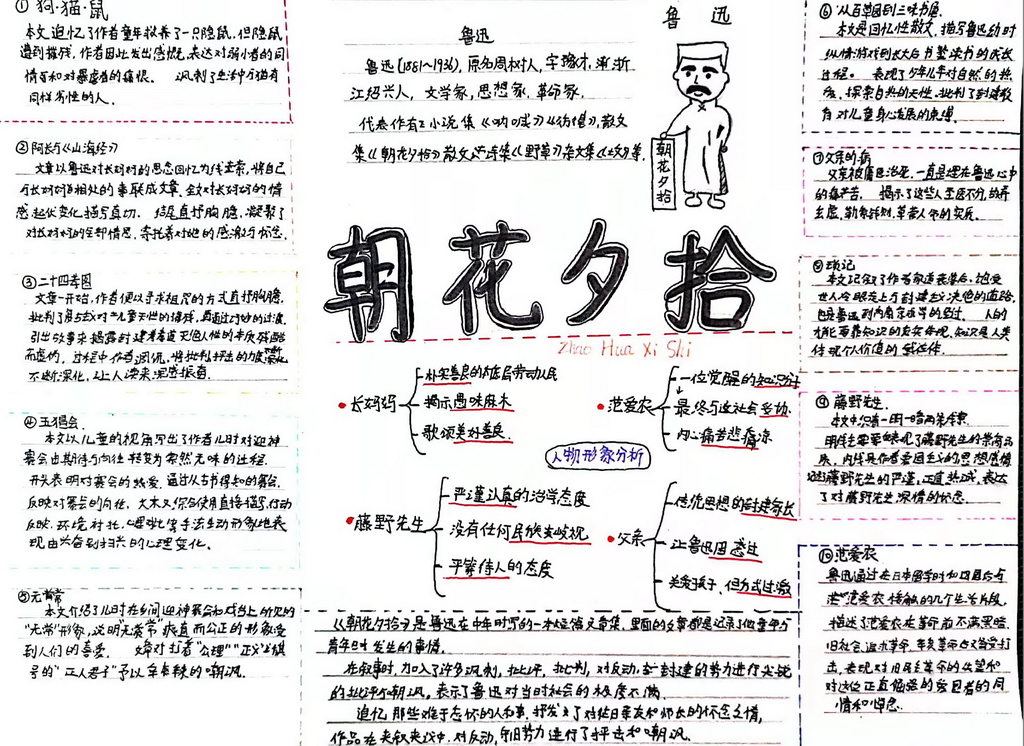 ① 狗·猫·鼠
本文追忆了作者童年救养了一只隐鼠,但隐鼠
遭到摧残,作者因此发出感慨,表达对弱小者的同
情和对暴虐者的憎恨。 讽刺了生活中与猫有
同样劣性的人。
② 阿长与《山海经》
文章以鲁迅对长妈妈的思念回忆为线索,将自己
与长妈妈相处的事联成文章,全文对长妈妈的情
感起伏变化描写真切。 结尾直抒胸臆,凝聚了
对长妈妈的全部情思,寄托着对她的感激与怀念。
③ 二十四孝图
文章一开始,作者便以寻求祖咒的方式直抒胸臆,
引出故事来揭露封建孝道灭绝人性的本质残酷
而虚伪,
不断深化,让人读来深感振奋。
④ 五猖会
本文以儿童的视角写出了作者儿时对迎神
赛会由期待与向往转变为索然无味的过程。
开头表明对赛会的热爱,通过从古书得知的赛会,
反映对赛会的向往,大末又综合使用直接描写,行动
反映,环境衬托,心理比写手法生动形象地表
现由兴奋到扫兴的心理变化。
⑤ 无常
本文介绍了儿时在乡间迎神赛会和戏台上所见的
“无常”形象,说明“无常”公正的形象受
到人们的喜爱。
号的“正人君子”予以辛辣的嘲讽。
鲁迅
鲁迅(1881~1936),原名周树人,字豫才,浙
江绍兴人, 文学家,思想家,革命家。
代表作有:小说集《呐喊》《彷徨》,散文
集《朝花夕拾》散文诗集《野草》杂文集《坟》等。
鲁 迅
朝花夕拾
朝花夕拾
Zhao Hua Xi Shi
长妈妈
朴实善良的底层劳动人民
揭示愚昧麻木
歌颂美好善良
范爱农
一位觉醒的知识分子
最终与这社会妥协
内心痛苦悲凉
人物形象分析
藤野先生
严谨认真的治学态度
没有任何民族歧视
平等待人的态度
父亲
传统思想的封建家长
让鲁迅困惑过
关爱孩子,但方式过激
《朝花夕拾》是鲁迅在中年时写的一本短篇文章集,里面的文章都是记录了他童年与
青年时发生的事情。
在叙事时,加入了许多讽刺,批评,批判,对反动,守封建的势力进行尖锐
的批评和嘲讽。表示了鲁迅对当时社会的极度不满。
追忆那些难于忘怀的人和事,抒发了对往日亲友和师长的怀念之情,
作品在夹叙夹议中,对反动,守旧势力进行了抨击和嘲讽。
⑥ 从百草园到三味书屋
本文是回忆性散文,描写鲁迅幼时
纵情游戏到长大后书塾读书的成长
过程。 表现了少年儿童对自然的热
爱,探索自然的天性,批判了封建教
育对儿童身心发展的束缚。
⑦ 父亲的病
父亲被庸医治死,一直是埋在鲁迅心中
的痛苦。 揭示了这些人巫医不分,故弄
玄虚,勒索钱财,草菅人命的实质。
⑧ 琐记
本文记叙了作者家道衰落后,饱受
⑨ 藤野先生
本文中只有一明一暗两条线索
了对藤野先生深情的怀念。
⑩ 范爱农
鲁迅通过在日本留学时和回国后与
范爱农接触的几个生活片段,
描述了范爱农在革命前不满黑暗
旧社会,追求革命,辛亥革命后又备受打
击,表现对旧民主革命的失望和
对这位正直倔强的爱国者的同
情和悼念。